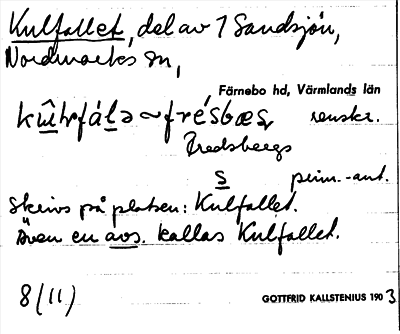 Kulfallet, del av 1 Sandsjön,
Nordmarks sn,
Färnebo hd, Värmlands län
renskr.
Fredsbergs
s prim.-ant.
Skrivs på platsen: Kulfallet.
Även en avs. kallas Kulfallet.
8(11) GOTTFRID KALLSTENIUS 1903